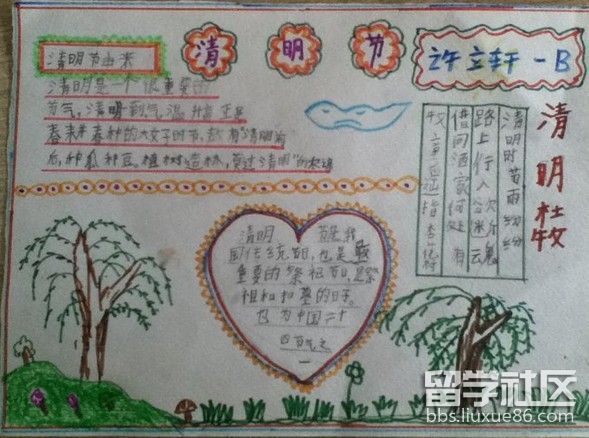 清明节
许立轩一B
清明节由来
清明是一个很重要的
节气,清明到气温升高正是
春耕春种的大好时节,故有"清明前
后,种瓜种豆,植树造林,莫过清明"的农谚
清明 杜牧
清明时节雨纷纷
路上行人欲断魂
借问酒家何处有
牧童遥指杏花村
清明 节是我
国传统节日,也是最
重要的祭祀节日,是祭
祖和扫墓的日子。
为中国二十
四节气之
一
留学社区
bbs.liuxue86.com